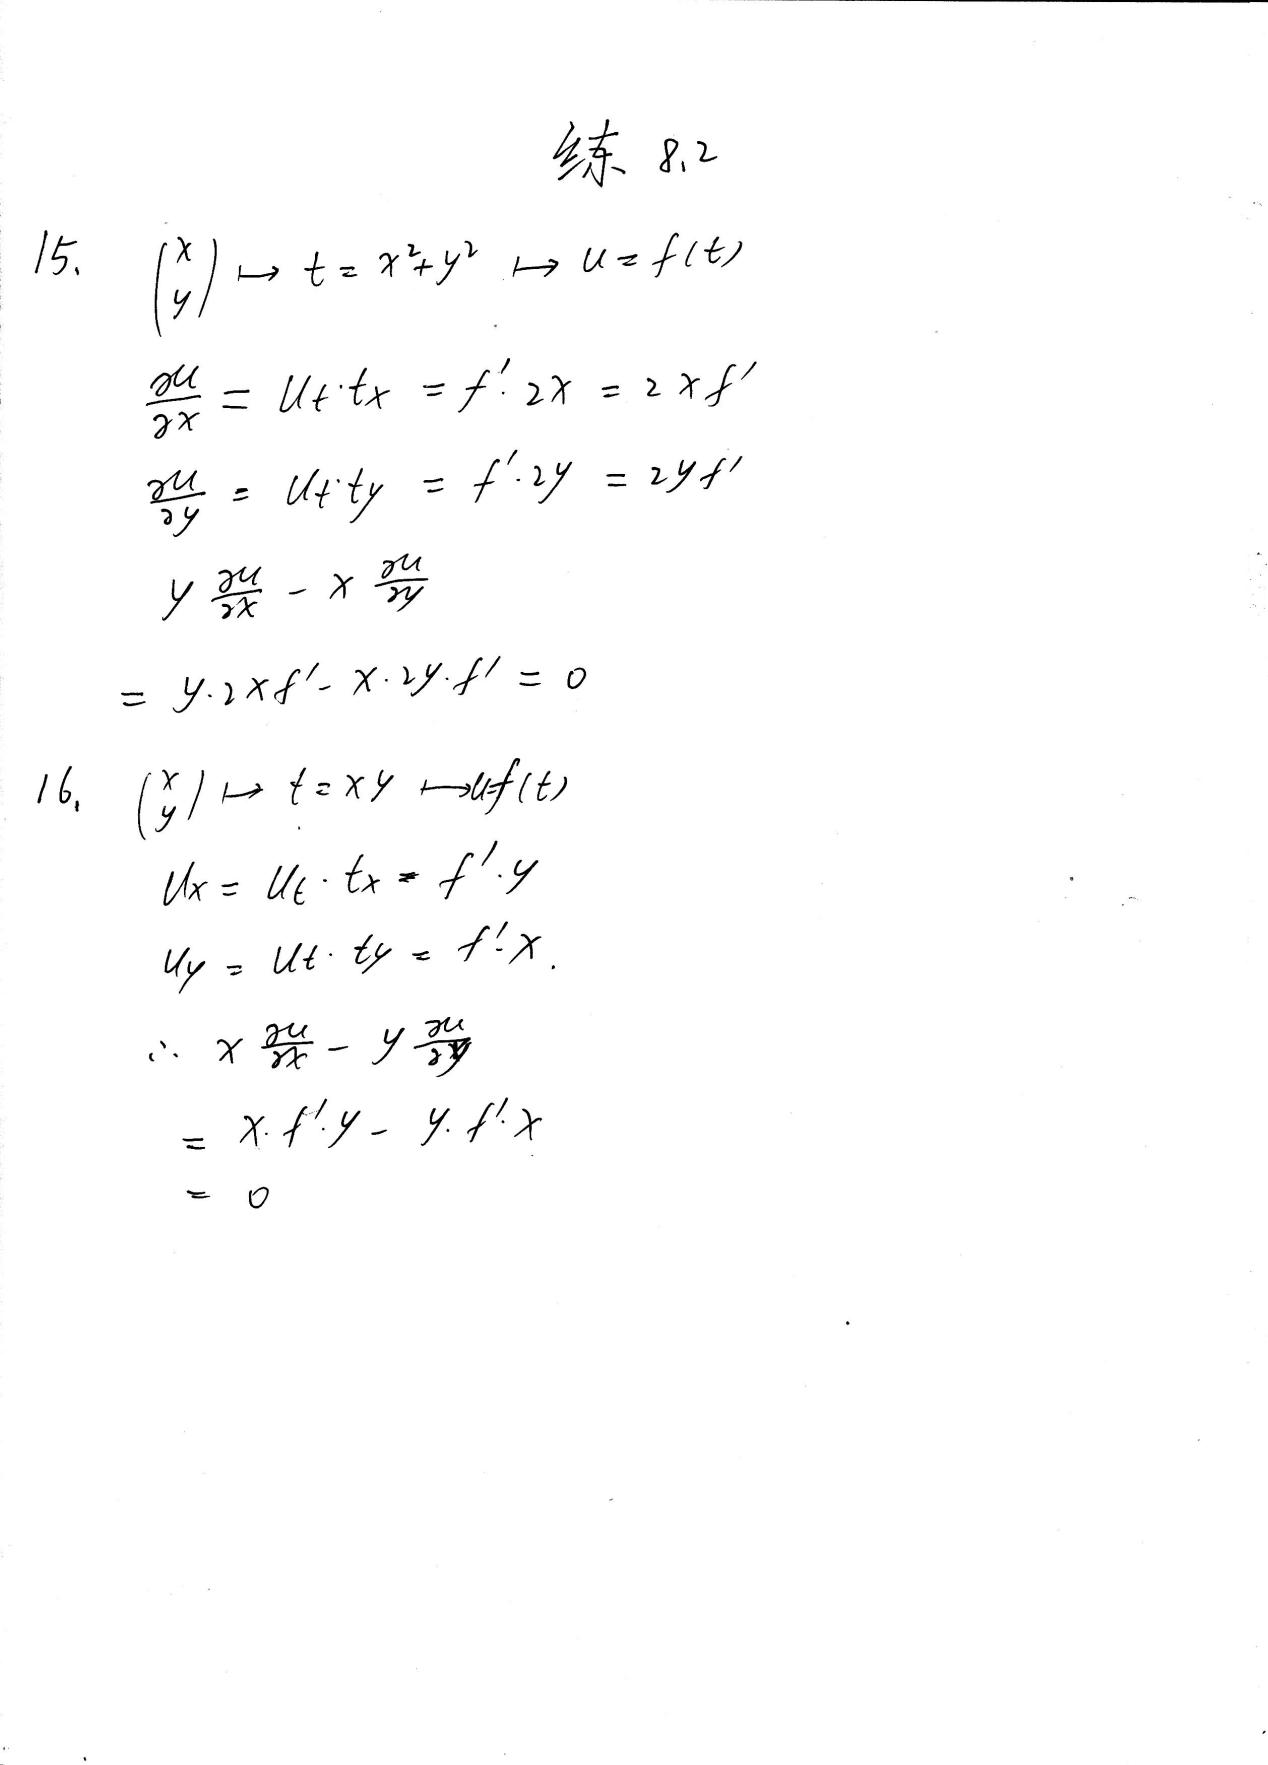 练 8.2
15. (x y) ↦ t = x²+y² ↦ u = f(t)
∂u/∂x = Ut·tx = f'·2x = 2xf'
∂u/∂y = Ut·ty = f'·2y = 2yf'
y ∂u/∂x - x ∂u/∂y
= y·2xf' - x·2y·f' = 0
16. (x y) ↦ t = xy ↦ u=f(t)
Ux = Ut·tx = f'·y
Uy = Ut·ty = f'·x.
∴ x ∂u/∂x - y ∂u/∂y
= x·f'·y - y·f'·x
= 0